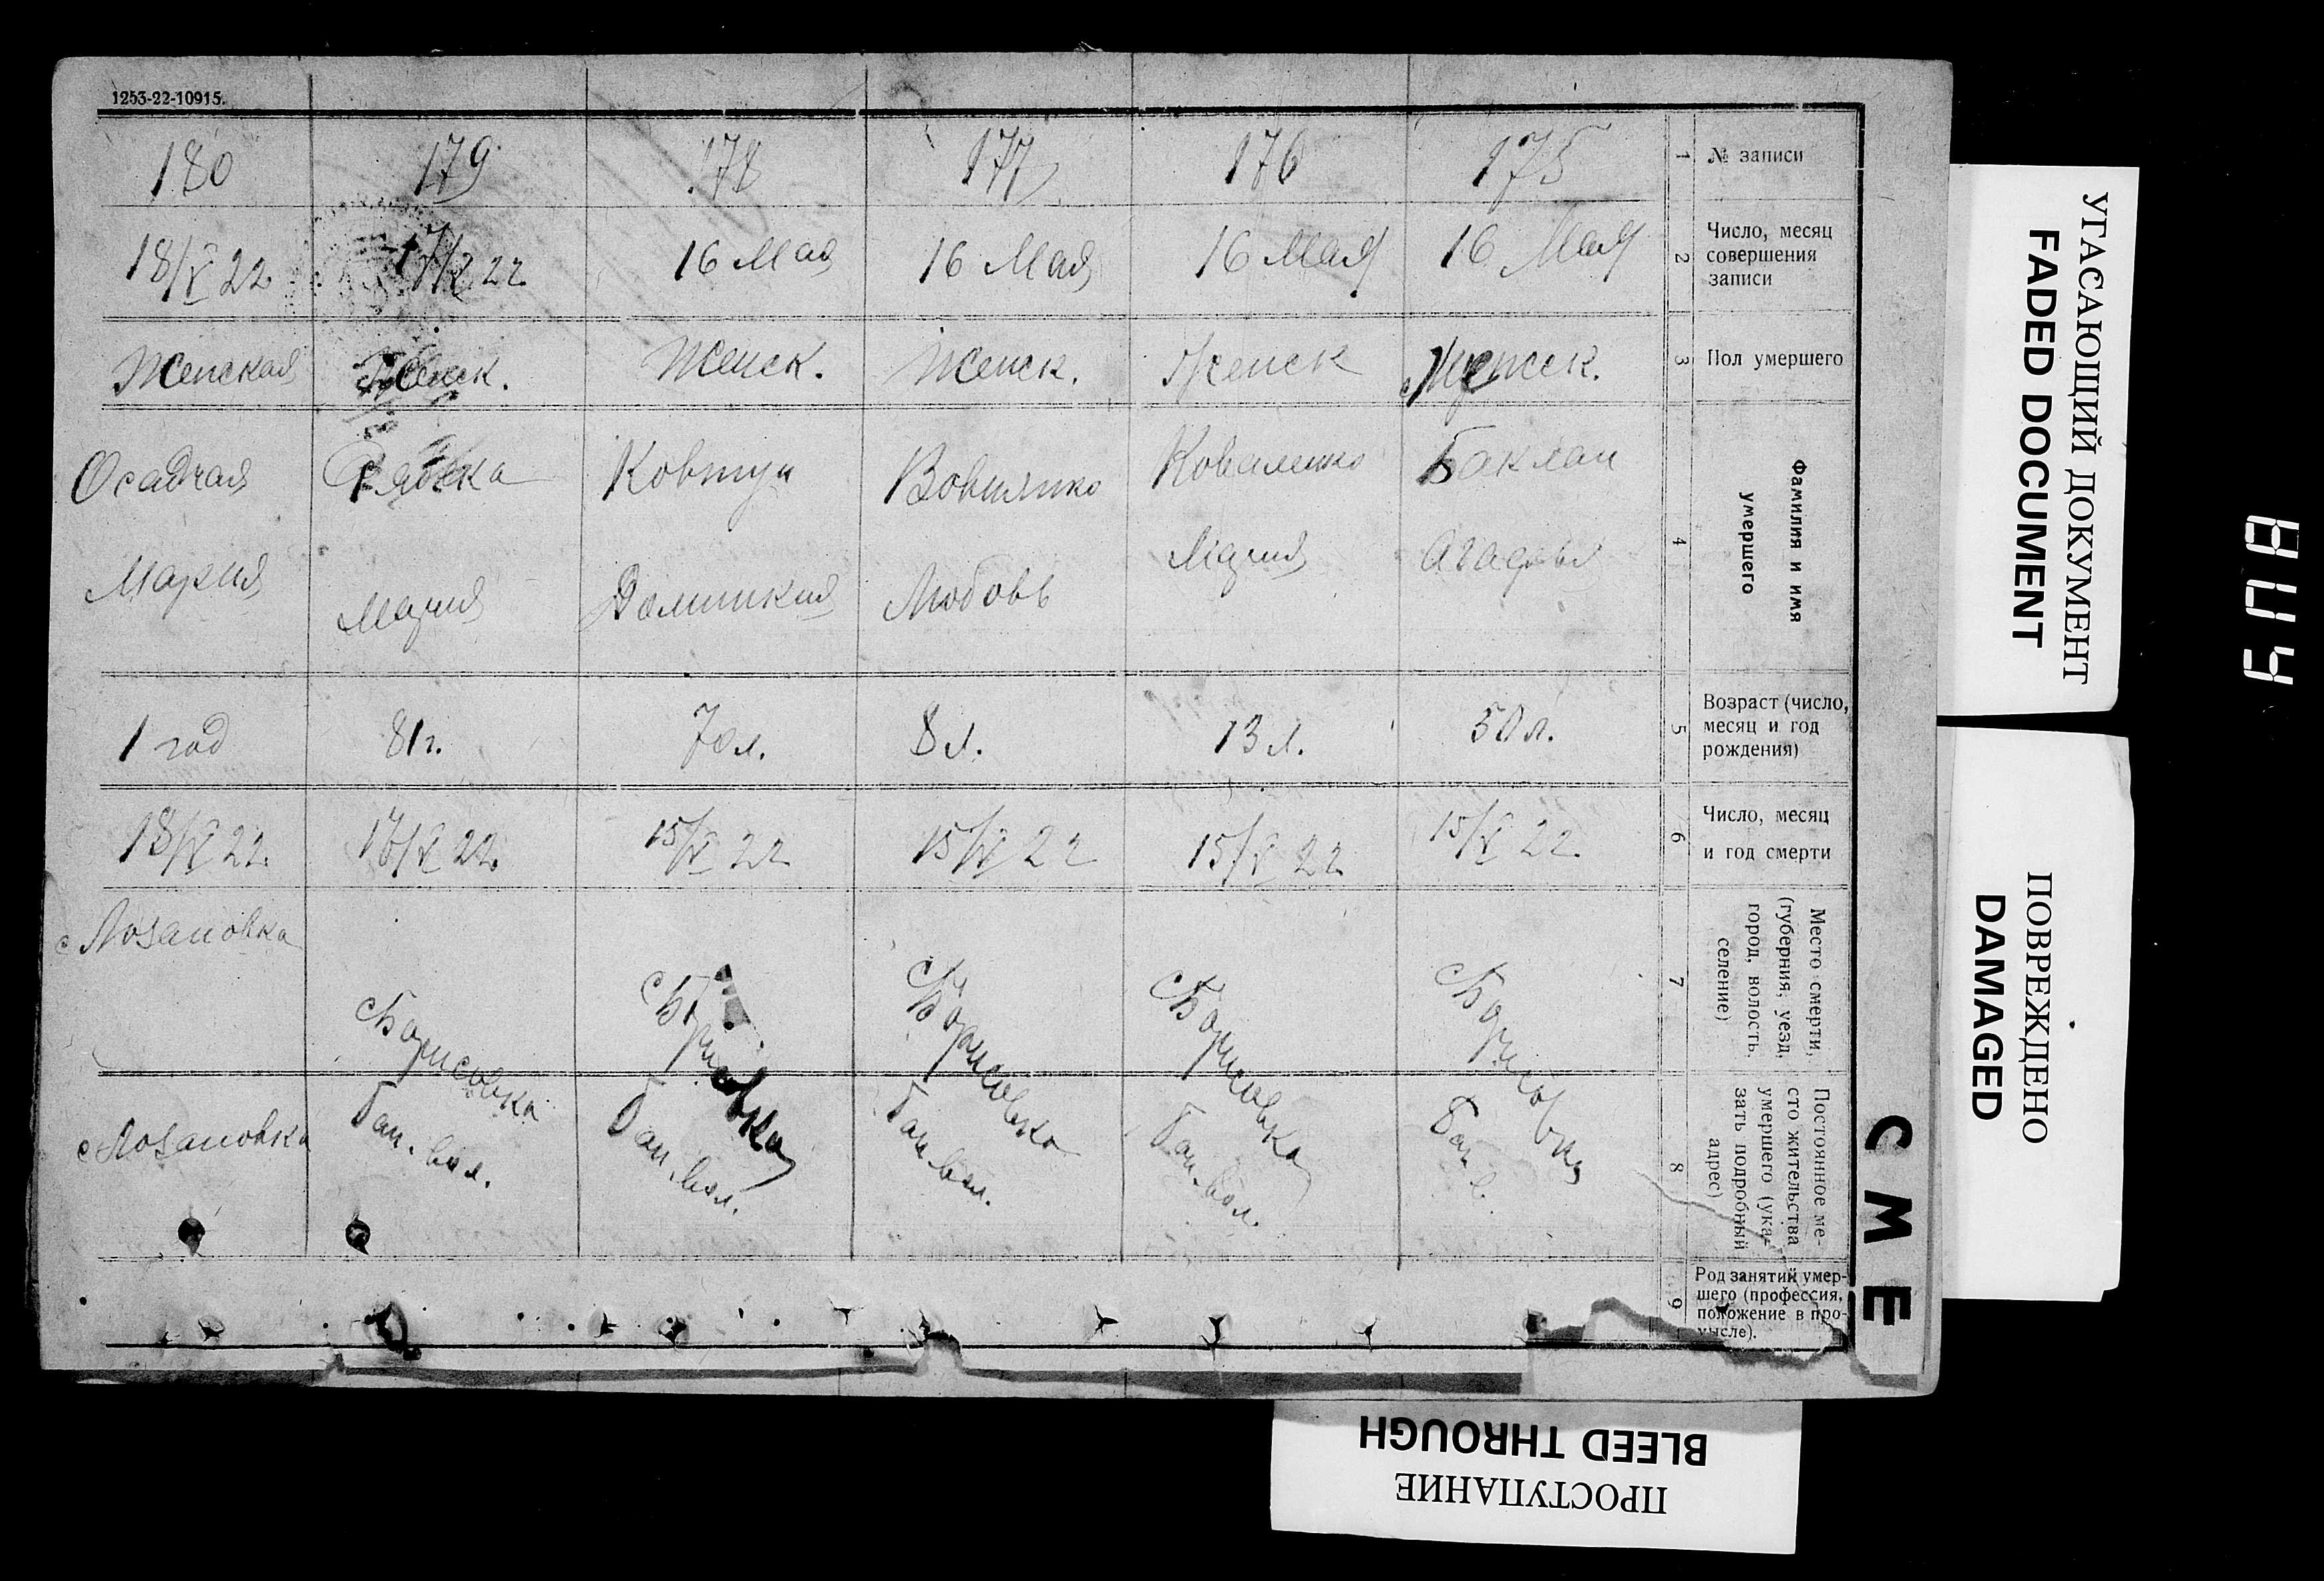 1253-22-10915.
180
179
178
177
176
175
1
№ записи
18/V 22
17/V 22
16 Мая
16 Мая
16 Мая
16 Мая
2
Число, месяц
совершения
записи
Женская
Женск.
Женск.
Женск.
Женск
Женск.
3
Пол умершего
Осадчая
Мария
Мария
Ковтун
Домникия
Любовь
Коваленко
Мария
Баклан
Агафья
4
Фамилия и имя
умершего
1 год
81 г.
70 л.
8 л.
13 л.
50 л.
5
Возраст (число,
месяц и год
рождения)
18/V 22.
/V 22.
15/V 22
15/V 22
15/V 22
15/V 22.
6
Число, месяц
и год смерти
с Лозановка
с Борисовка
с Борисовка
с Борисовка
с Борисовка
с Борисовка
7
Место смерти,
(губерния, уезд,
город, волость,
селение)
с Лозановка
Ган. вол.
Ган. вол.
Ган. вол.
Ган. вол.
8
Постоянное ме-
сто жительства
умершего (ука-
зать подробный
адрес)
9
Род занятий умер-
шего (профессия,
положение в про-
мысле).
СМЕ
УГАСАЮЩИЙ ДОКУМЕНТ
FADED DOCUMENT
ПОВРЕЖДЕНО
DAMAGED
BLEED THROUGH
ПРОСТУПАНИЕ